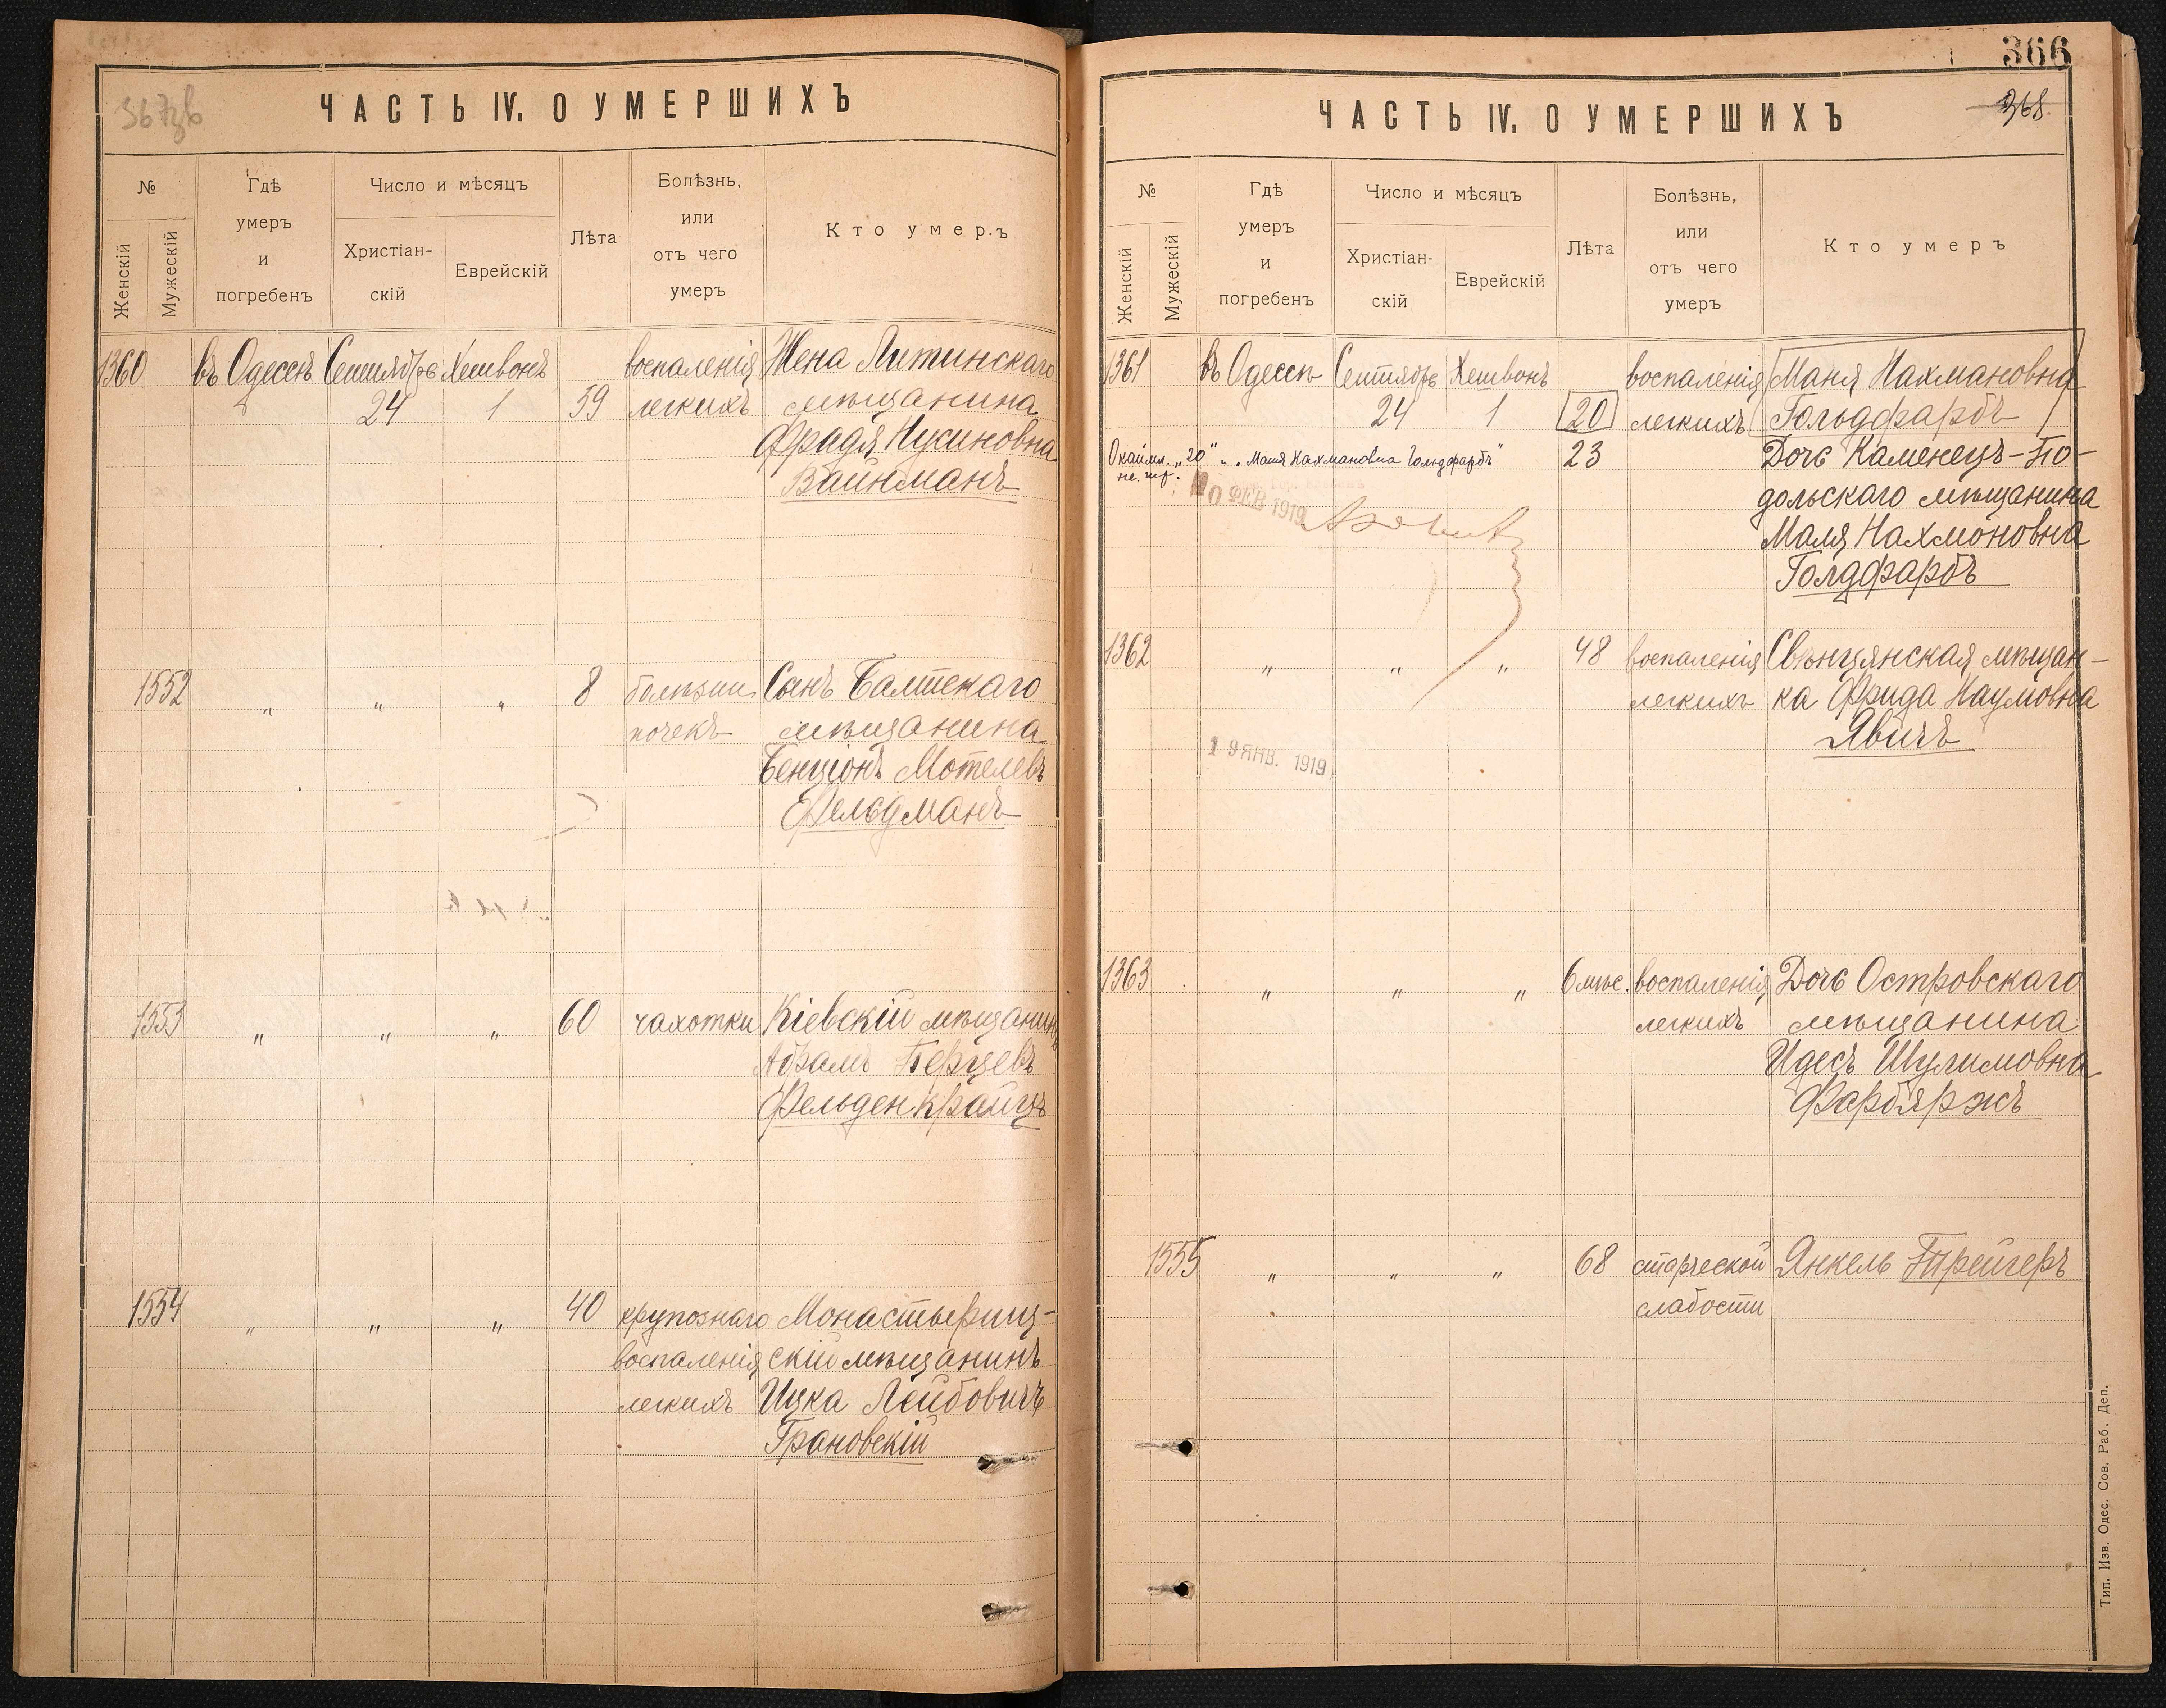 ЧАСТЬ IV. О УМЕРШИХЪ
№
Женскій
Мужескій
Гдѣ
умеръ
и
погребенъ
Число и мѣсяцъ
Христіан-
скій
Еврейскій
Лѣта
Болѣзнь,
или
отъ чего
умеръ
Кто умеръ
1360 въ Одессѣ Сентябрь Хешвонъ воспаленія Жена Литинскаго
24 1 59 легкихъ мѣщанина
Фрадя Нусиновна
Вайнманъ
1552 " " " 8 болѣзни Сынъ Балтскаго
почекъ мѣщанина
Бенціонъ Мотелевъ
Фельдманъ
1553 " " " 60 чахотки Кіевскій мѣщанинъ
Абрамъ Берцевъ
Фельденкрайцъ
1554 " " " 40 крупознаго Монастырищ-
воспаленія скій мѣщанинъ
легкихъ Ицка Лейбовичъ
Грановскій
366
368.
ЧАСТЬ IV. О УМЕРШИХЪ
№
Женскій
Мужескій
Гдѣ
умеръ
и
погребенъ
Число и мѣсяцъ
Христіан-
скій
Еврейскій
Лѣта
Болѣзнь,
или
отъ чего
умеръ
Кто умеръ
1361 въ Одессѣ Сентябрь Хешвонъ воспаленія Маня Нахмановна
24 1 20 легкихъ Гольдфарбъ
Окаймл. „20" „Маня Нахмановна Гольдфарбъ" 23 Дочь Каменецъ-По-
не. чит. дольскаго мѣщанина
ФЕВ 1919
Маля Нахмоновна
Голдфарбъ
1362 " " " 48 воспаленія Свѣнцянская мѣщан-
легкихъ ка Фрида Наумовна
Явичъ
19 ЯНВ. 1919
1363 " " " 6 мѣс. воспаленія Дочь Островскаго
легкихъ мѣщанина
Идесъ Шулимовна
Фарбяржъ
1555 " " " 68 старческой Янкель Трейгеръ
слабости
Тип. Изв. Одес. Сов. Раб. Деп.